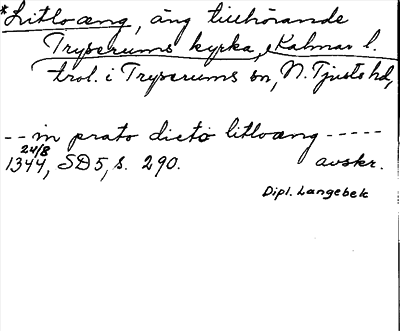 *Litloæng, äng tillhörande
Tryserums kyrka, Kalmar l.
trol. i Tryserums sn, N. Tjusts hd,
-- in prato dicto litloæng -----
24/8
1344, SD5, s. 290. avskr.
Dipl. Langebek